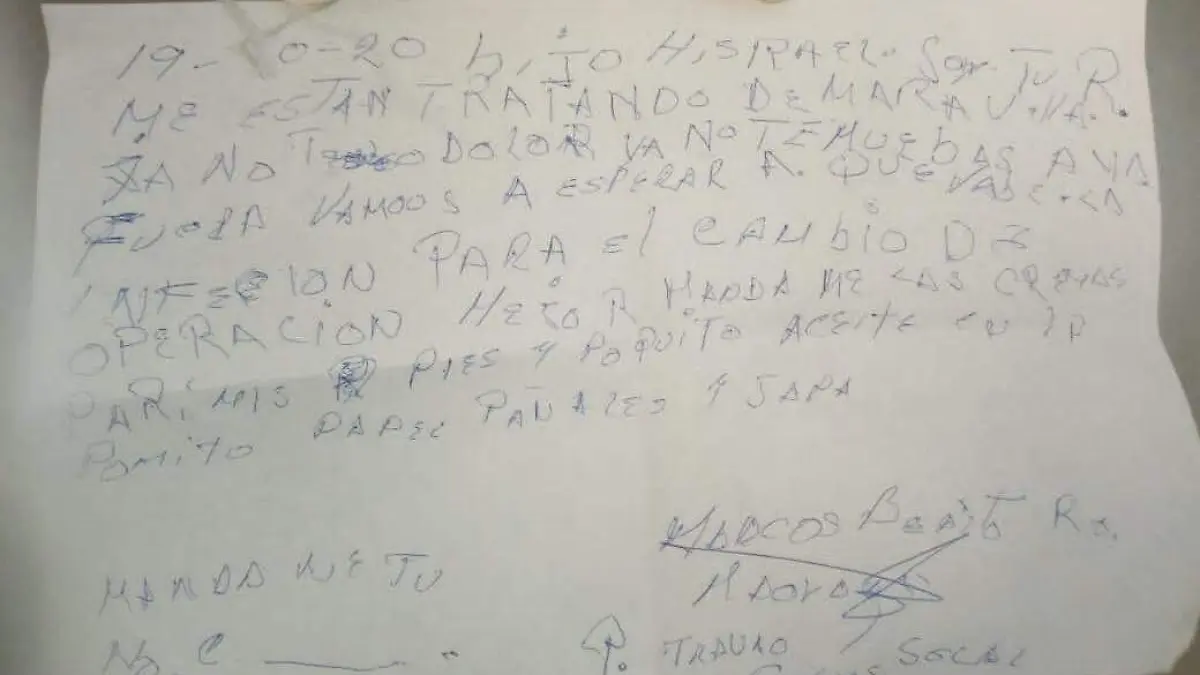 19- 0-20 hijo HISRAEL. Soy Tu R.
ME ESTAN TRATANDO DE MARAVILLA.
YA NO DOLOR YA NO TE MUEBAS A YA
FUERA VAMOOS A ESPERAR A. QUE
INFECCION PARA El CAMBIO DE
OPERACION MEJOR MANDA ME LAS CREMAS
PARA MIS PIES Y POQUITO ACEITE EN
POMITO PAPEL PAÑALES Y JAPA
MARCOS BENITO
MANDA ME TU
No. C
TRAVAJO SOCIAL